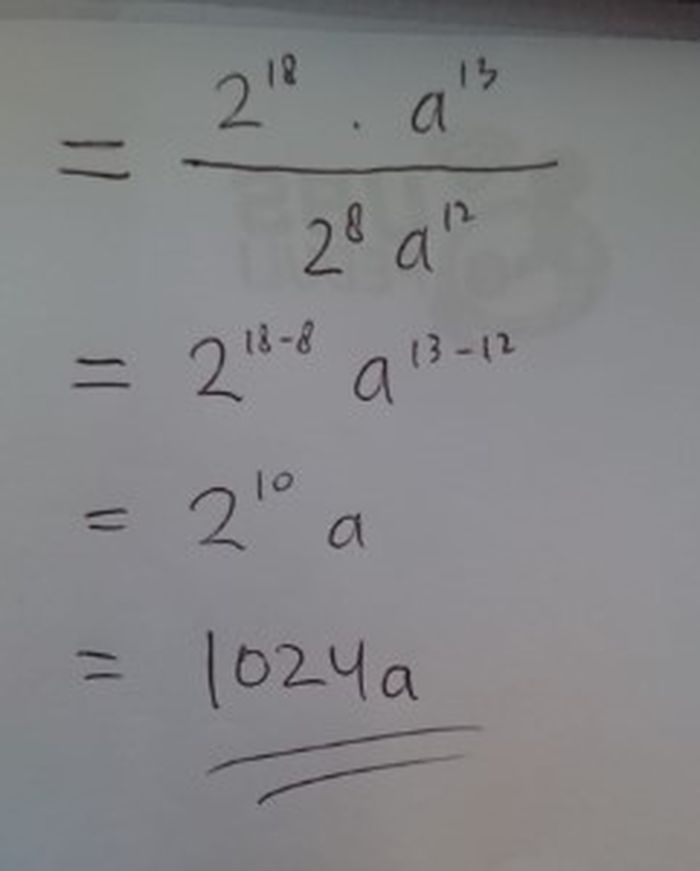 = 2^18 . a^13 / 2^8 a^12
= 2^18-8 a^13-12
= 2^10 a
= 1024a